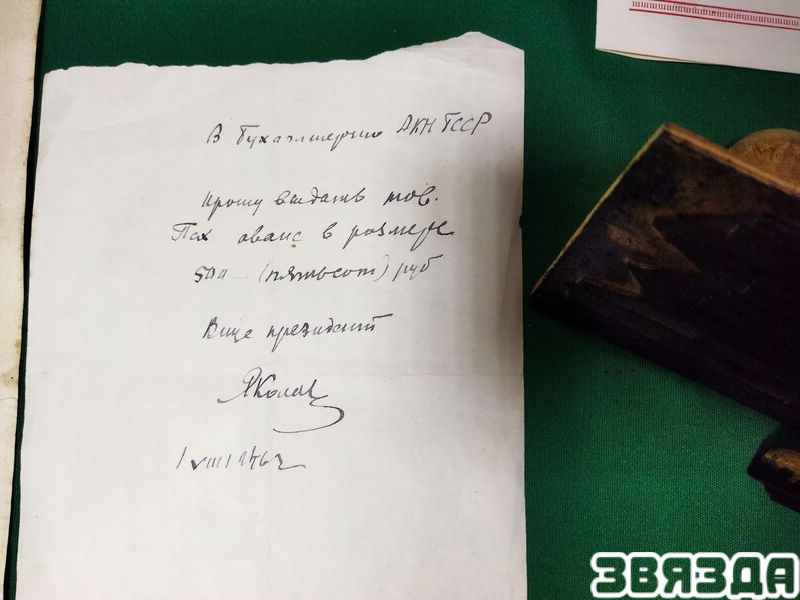 В Бухгалтерию АКН БССР
Прошу выдать тов.
Пех аванс в размере
500 (пятьсот) руб
Вице президент
ЯКолас
1 VIII 1946 г
ЗВЯЗДА